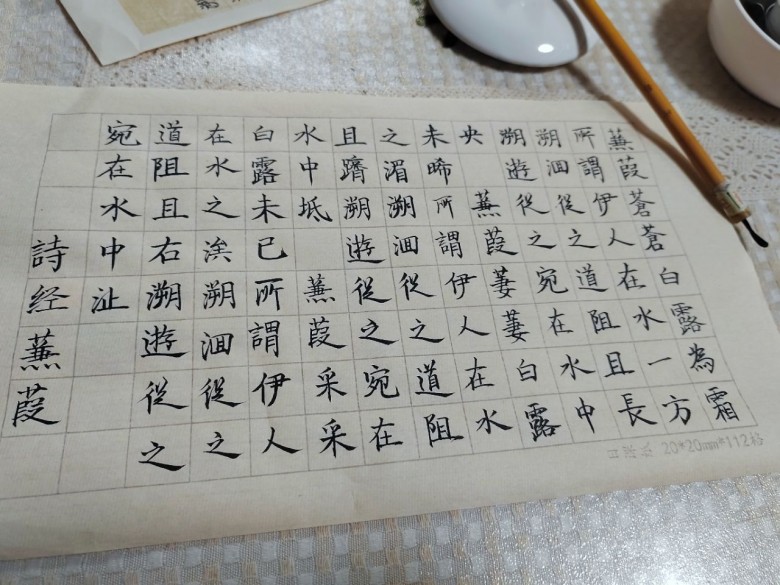 蒹葭蒼蒼白露為霜
所謂伊人在水一方
溯洄從之道阻且長
溯遊從之宛在水中
央 蒹葭萋萋白露
未晞所謂伊人在水
之湄溯洄從之道阻
且躋溯遊從之宛在
水中坻 蒹葭采采
白露未已所謂伊人
在水之涘溯洄從之
道阻且右溯遊從之
宛在水中沚
詩经蒹葭
20*20mm*112格